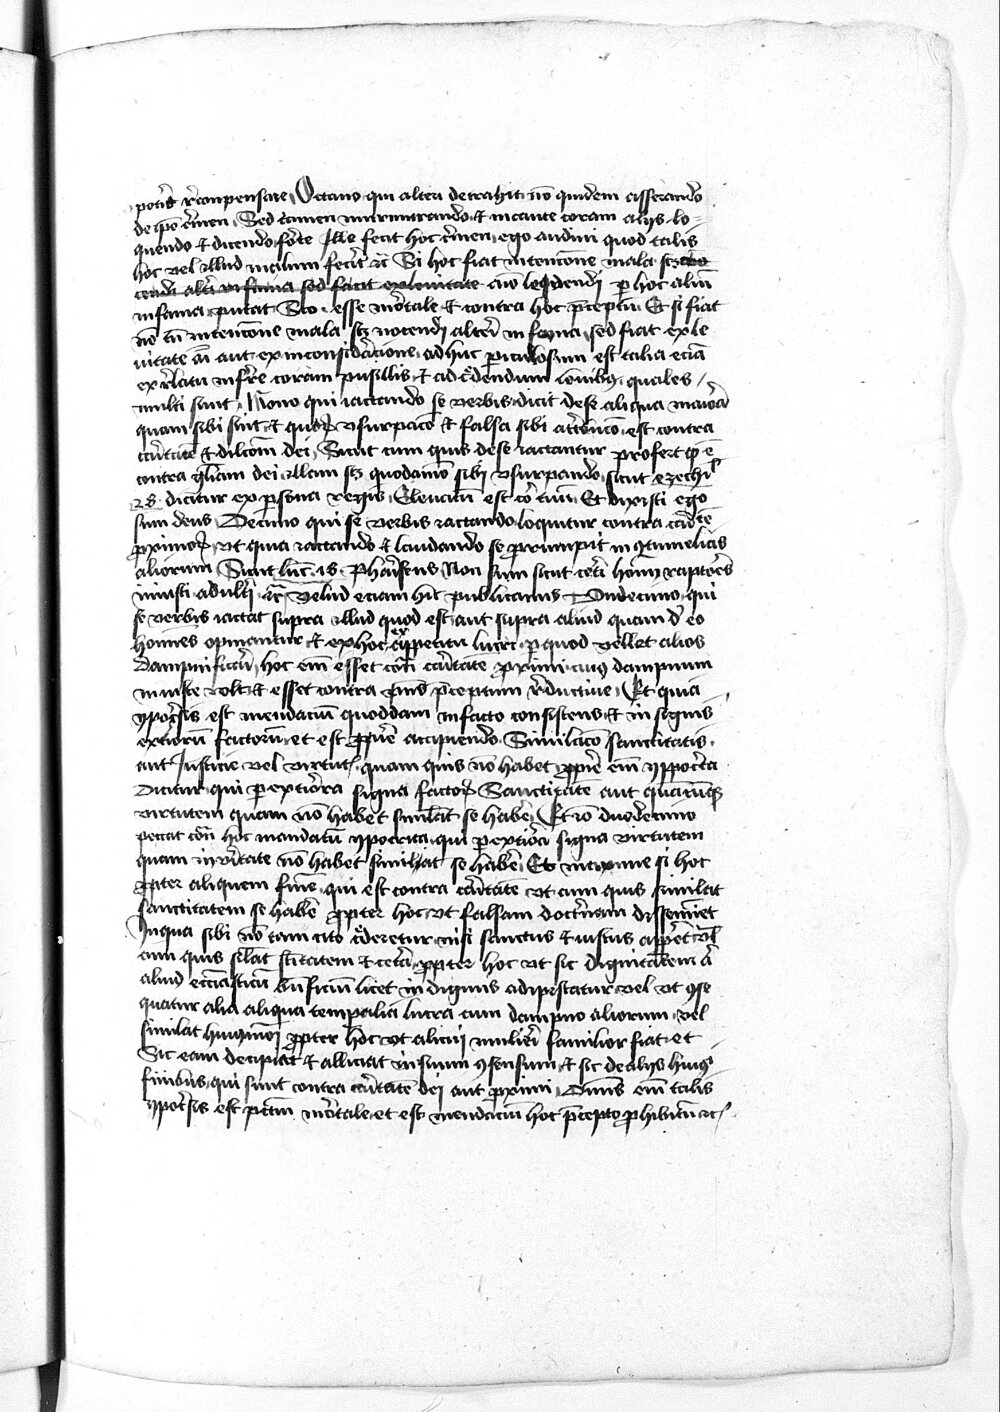 poterit recompensare Octavo qui alteri detrahit non quidem asserendo
de ipso crimen Sed tamen murmurando et incaute coram aliis lo-
quendo et dicendo forte Ille fecit hoc crimen ego audivi quod talis
hoc vel illud malum fecerit etc Si hoc fiat intencione mala scz
cendi alteri infamia sed facit ex levitate animo ledendi per hoc alium
infamia putat esse mortale et contra hoc preceptum Et si fiat
non cum intencione mala scz nocendi alteri in fama sed fiat ex le
vitate aut ex inconsideracione ad huc periculosum est talia eciam
ex relatu inferre coram pusillis et ad credendum levibus quales
multi sunt Nono qui iactando se verbis dicit de se aliqua maiora
quam sibi sint et usurpacio et falsa sibi est contra
caritatem et dilectionem dei Sicut cum quis de se iactantur profert quod est
contra gloriam dei illam scz quodammodo sibi usurpando sicut ezechiel
28 dicitur ex persona regis Elevatum est cor tuum Et dixisti ego
sum deus Decimo qui se verbis iactando loquitur contra caritatem
proximorum ut quia iactando et laudando se prorumpit in contumelias
aliorum Sicut luc 18 Phariseus Non sum sicut ceteri homines raptores
iniusti adulteri etc velud eciam hic publicanus Undecimo qui
se verbis iactat supra illud quod est aut supra aliud quam de eo
homines opinantur et ex hoc ex appetitu lucri per quod vellet alios
dampnificare hoc enim esset contra caritatem proximi cuius dampnum
iniuste vult et esset contra primum preceptum reductive Et quia
ypocrisis est mendacium quoddam in facto consistens et in signis
exteriorum factorum et est proprie accipiendo Simulacio sanctitatis
aut Iusticie vel virtutis quam quis non habet proprie enim yppocrita
dicitur qui per exteriora signa factorum Sanctitatem aut quamcumque
virtutem quam non habet simulat se habere Et ideo duodecimo
peccat contra hoc mandatum ypocrita qui per exteriora signa virtutem
quam in veritate non habet simulat se habere Et maxime si hoc
propter aliquem finem qui est contra caritatem ut cum quis simulat
sanctitatem se habere propter hoc ut falsam doctrinam disseminet
In qua sibi non tam cito crederetur nisi sanctus et iustus appareret vel
cum quis simulat sanctitatem et cetera propter hoc ut sic dignitatem aut
aliud ecclesiasticum beneficium licet indignus adipiscatur vel ut conse
quatur alia aliqua temporalia lucra cum dampno aliorum vel
simulat huiusmodi propter hoc ut alicui mulieri familior fiat et
Sic eam decipiat et alliciat in suum consensum et sic de aliis huius
finibus qui sunt contra caritatem dei aut proximi Omnis enim talis
ypocrisis est peccatum mortale et est mendacium hoc precepto prohibitum etc